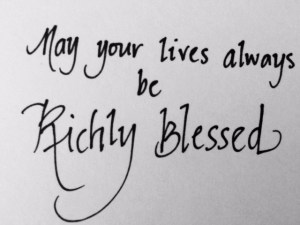 May your lives always
be
Richly Blessed